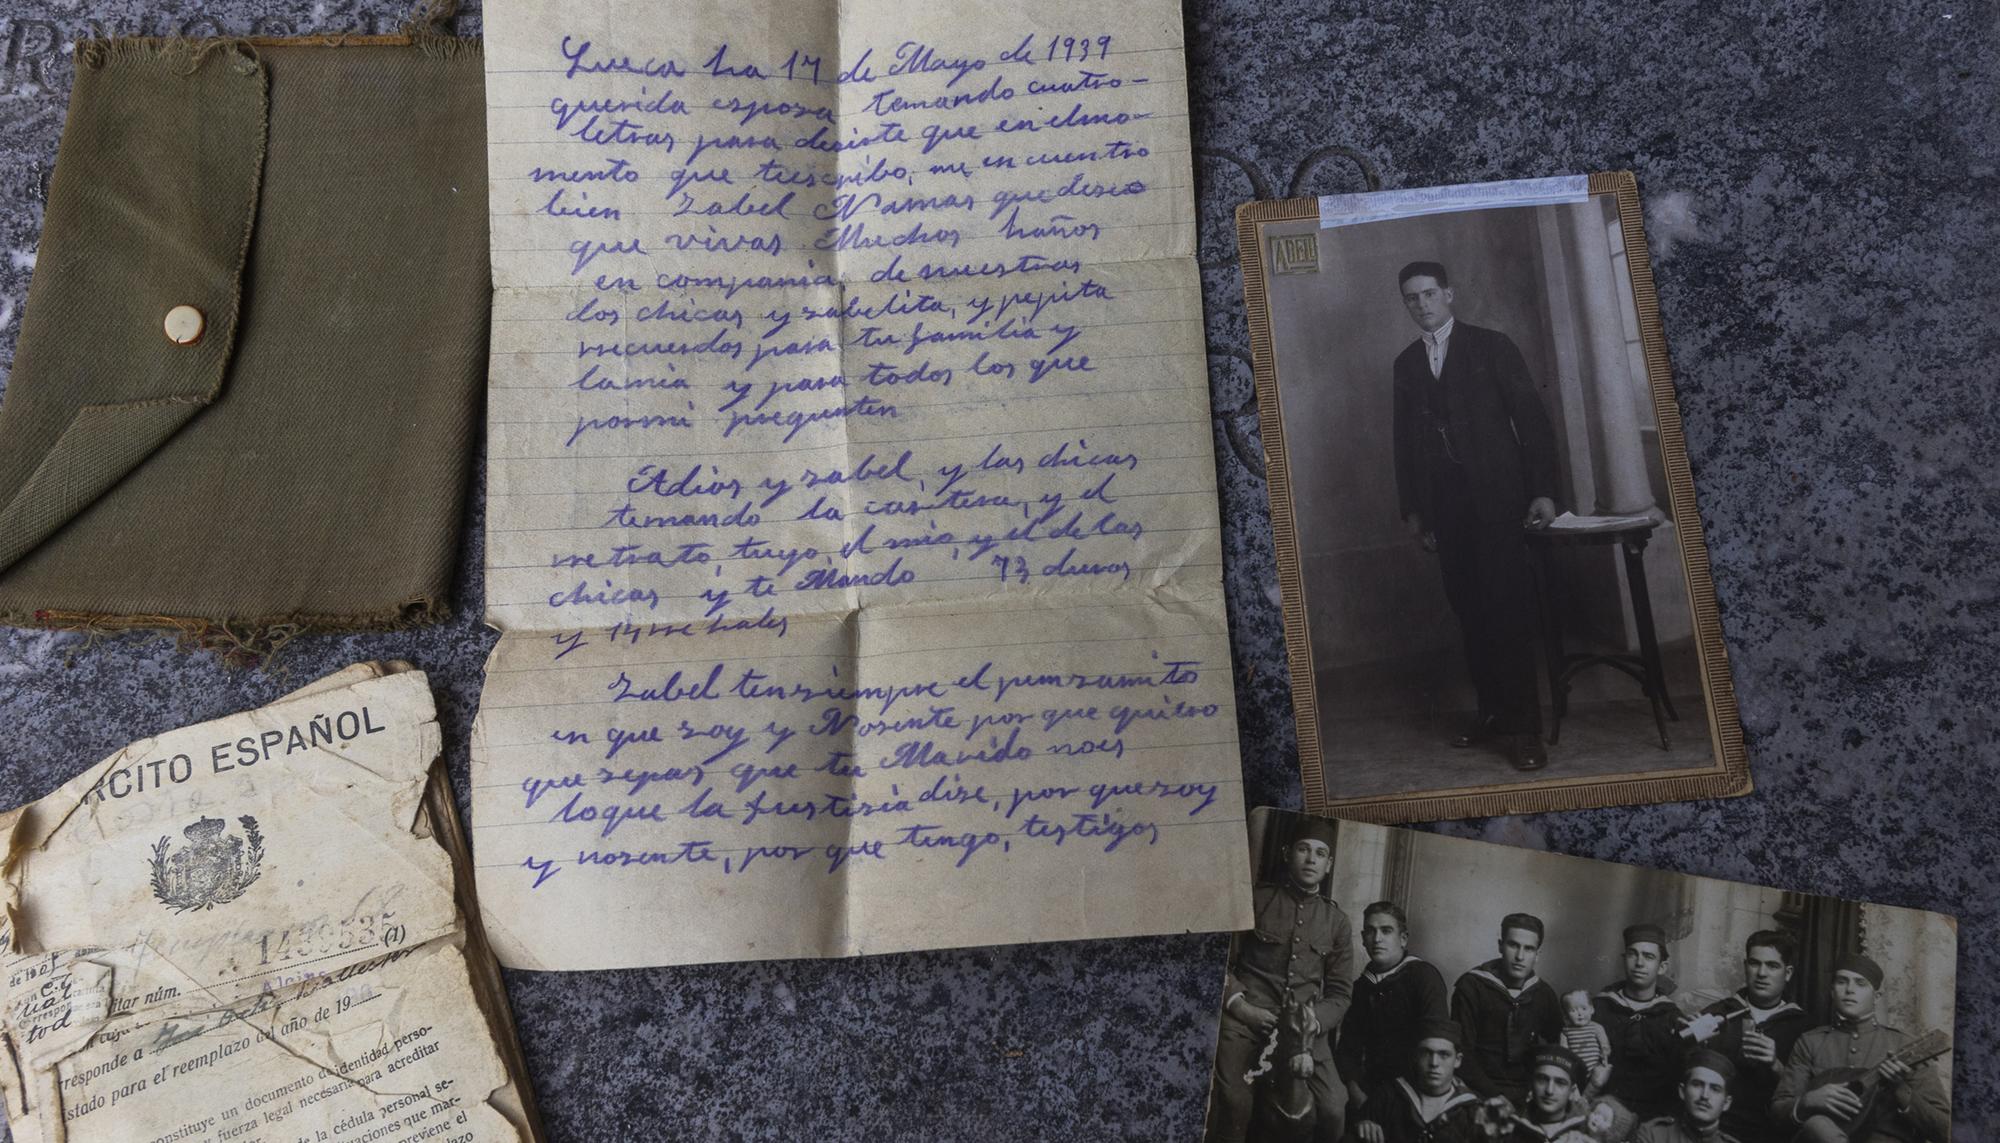 Lueca ha 17 de Mayo de 1939
querida esposa temando cuatro-
letras para desirte que en elmo-
mento que tuescribo, me encuentro
bien Zabel Namas que deseo
que vivas Muchos haños
en compania, de nuestras
dos chicas y zabelita, y pepita
rrecuerdos para tu familia y
lamia y para todos los que
pormi pregunten
Adios y zabel, y las chicas
temando la cartera, y el
rretrato, tuyo, el mio, y el de las
chicas y te Mando 73 duros
y 14 rrehales
Zabel tensiempre el pemzamito
en que soy y Nosente por que quiero
que sepas que tu Marido noes
loque la Justisia dise, por que soy
y nosente, por que tengo, testigos
RCITO ESPAÑOL
1430535 (1)
litar núm.
rresponde a
istado para el reemplazo del año de 19
onstituye un documento de identidad perso-
y fuerza legal necesaria para acreditar
de la cédula personal se-
uaciones que mar-
previene el